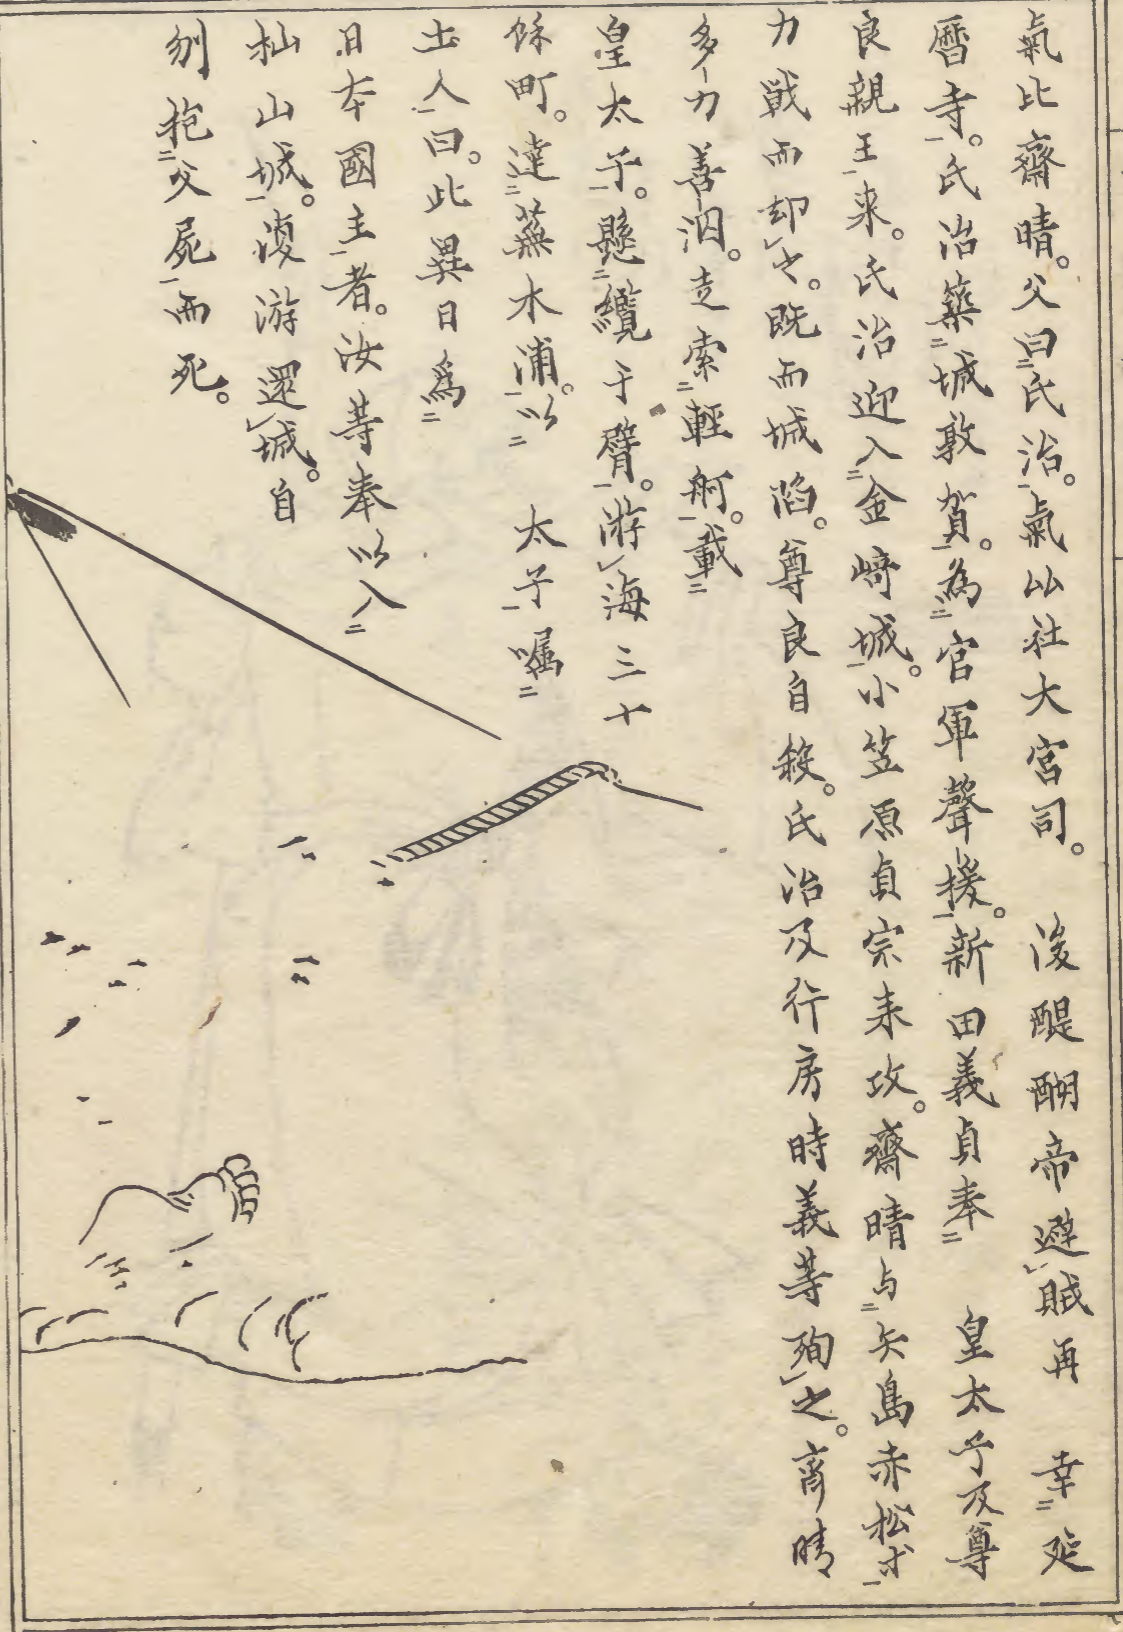 氣比齋晴。父曰氏治。氣比社大宮司。後醍醐帝避賊再幸延
曆寺。氏治築城敦賀。為官軍聲援。新田義貞奉皇太子及尊
良親王来。氏治迎入金﨑城。小笠原貞宗来攻。齋晴与矢島赤松等
力戰而却之。既而城陷。尊良自殺。氏治及行房時義等殉之。齋晴
多力善泅。走索輕舸。載
皇太子。懸纜于臂。游海三十
餘町。達蕪木浦。以太子嘱
土人曰。此異日為
日本國主者。汝等奉以入
杣山城。復游還城。自
刎抱父屍而死。